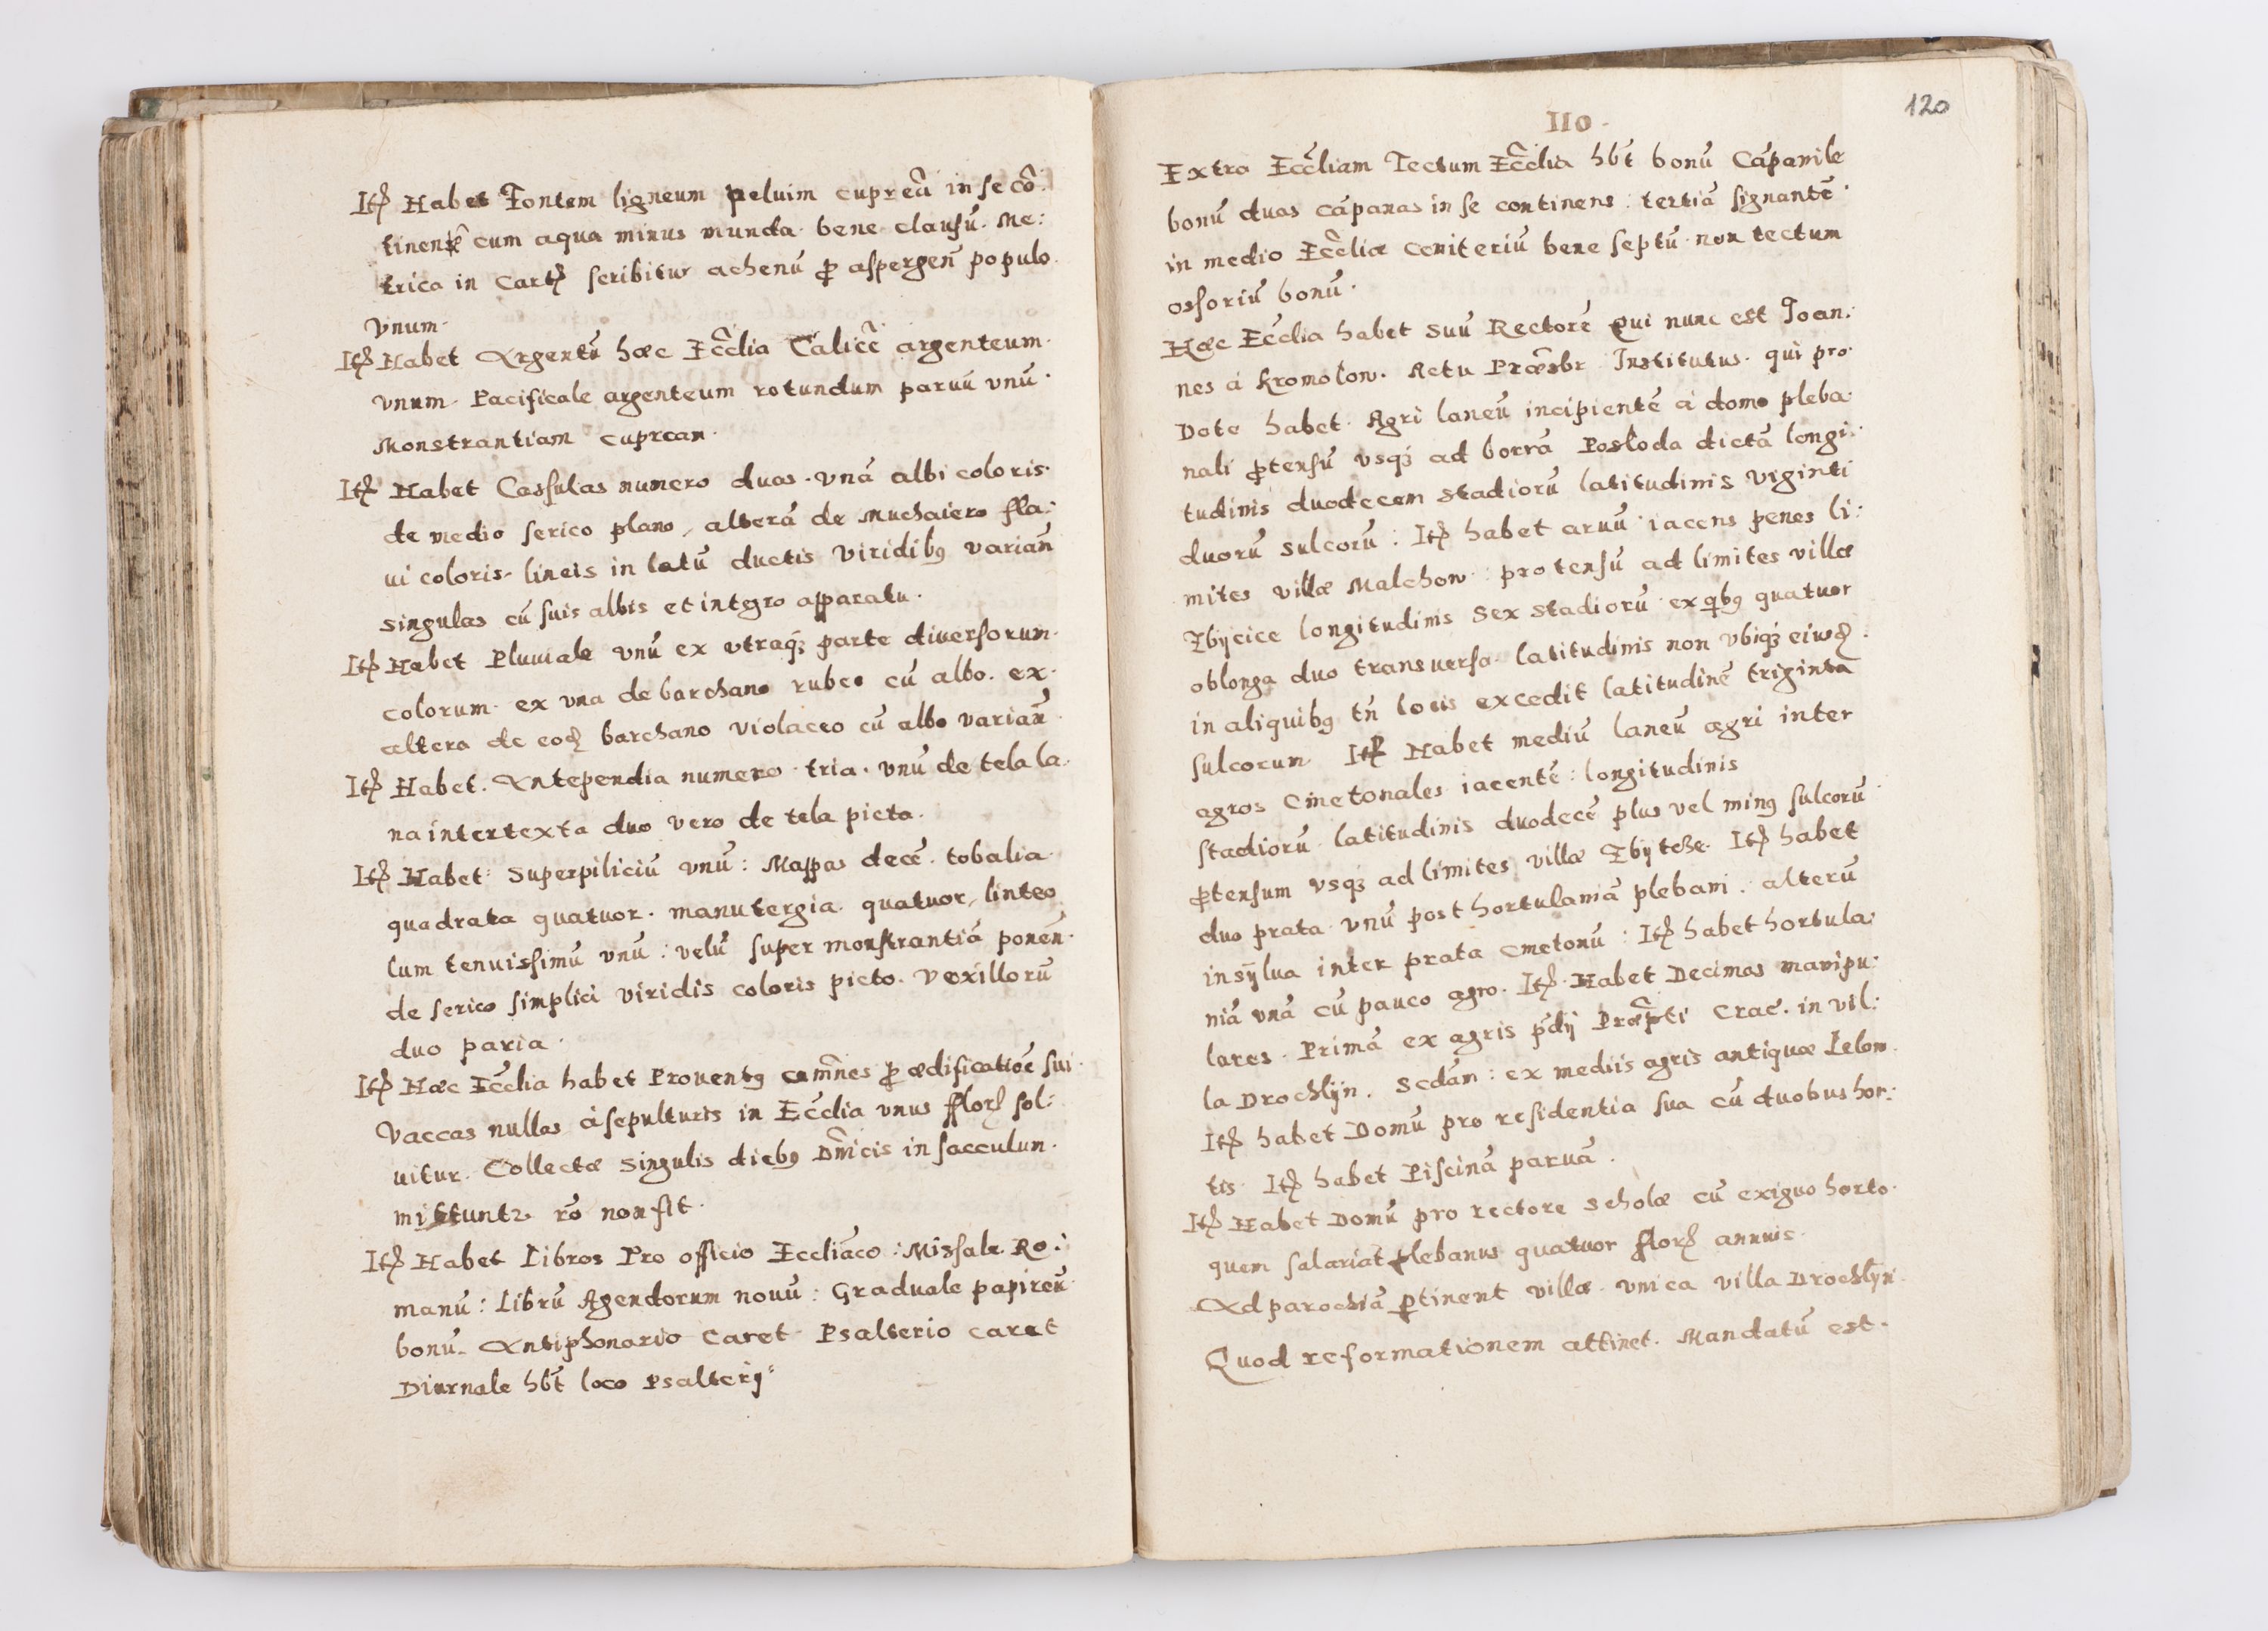 Itꝫ Habet Fontem ligneum peluim cupreã in se cõ:
tinentẽ cum aqua minus munda bene clausũ. Me:
trica in Cartꝫ scribitur achenũ ꝓ aspergeñ populo
vnum.
Itꝫ Habet Argentũ hæc Eccĩlia Calicẽ argenteum
vnum. Pacificale argenteum rotundum paruũ vnũ.
Monstrantiam cupream.
Itꝫ Habet Cassulas numero duas. vnã albi coloris
de medio serico plano, alterã de Muchaiero fla:
ui coloris. lineis in latũ ductis viridibꝰ variañ
singulas cũ suis albis et integro apparatu.
Itꝫ Habet Pluuiale vnũ ex vtraqꝫ parte diuersorum
colorum. ex vna de barchano rubeo cũ albo. ex
altera de eodꝫ barchano violaceo cũ albo variañ.
Itꝫ Habet. Antependia numero tria. vnũ de tela la
na intertexta duo vero de tela picta.
Itꝫ Habet: Superpiliciũ vnũ: Mappas decẽ. tobalia
quadrata quatuor. manutergia quatuor, linteo
lum tenuissimũ vnũ: velũ super monstrantiã poneñ
de serico simplici viridis coloris picto. Vexillorũ
duo paria.
Itꝫ Hæc Eccĩlia habet Prouentꝰ om̃nes ꝓ ædificatiõe sui
Vaccas nullas à sepulturis in Eccĩlia vnus fflorꝫ sol:
uitur. Collectæ singulis diebꝰ Dñicis in sacculum
mittuntꝛ rõ non fit.
Itꝫ Habet Libros Pro officio Eccliãco: Missale Ro:
manũ: Librũ Agendorum nouũ: Graduale papireũ
bonũ. Antiphonario Caret Psalterio caret
Diurnale hẽt loco Psalterij
110.
120
Extra Eccĩliam Tectum Eccĩlia hẽt bonũ Cãpanile
bonũ duas cãpanas in se continens: tertiã signantẽ
in medio Eccĩliæ Cemiteriũ bene septũ non tectum
ossoriũ bonũ.
Hæc Eccĩlia habet suũ Rectorẽ Qui nunc est Joan:
nes à Kromolow. Actu Præsbr Institutus. qui pro
Dote habet Agri laneũ incipientẽ à domo pleba
nali ꝓtensũ vsqꝫ ad borrã Posłoda dictã longi:
tudinis duodecem stadiorũ latitudinis viginti
duorũ sulcorũ: Itꝫ habet aruũ iacens penes li:
mites villæ Malchow: protensũ ad limites villæ
Zbijcice longitudinis sex stadiorũ ex qibꝰ quatuor
oblonga duo transuersa latitudinis non vbiqꝫ eiusdꝫ.
in aliquibꝰ tñ locis excedit latitudinẽ triginta
sulcorum Itꝫ Habet mediũ laneũ agri inter
agros Cmetonales iacentẽ: longitudinis
stadiorũ latitudinis duodecẽ plus vel minꝰ sulcorũ
ꝓtensum vsqꝫ ad limites villæ Zbytcze. Itꝫ habet
duo prata vnũ post hortulaniã plebani. alterũ
in sylua inter prata Cmetonũ: Itꝫ habet hortula:
niã vnã cũ pauco agro. Itꝫ. Habet Decimas manipu:
lares. Primã ex agris p̃dij Præp̃ti Crac. in vil:
la Drochlijn. Sc̃dam: ex mediis agris antiquæ Lelow
Itꝫ habet Domũ pro residentia sua cũ duobus hor:
tis. Itꝫ habet Piscinã paruã.
Itꝫ Habet Domũ pro rectore Scholæ cũ exiguo horto.
quem salariat plebanus quatuor fflorꝫ annuis.
Ad parochiã ꝑtinent villæ vnica villa Drochlyn.
Quod reformationem attinet. Mandatũ est.